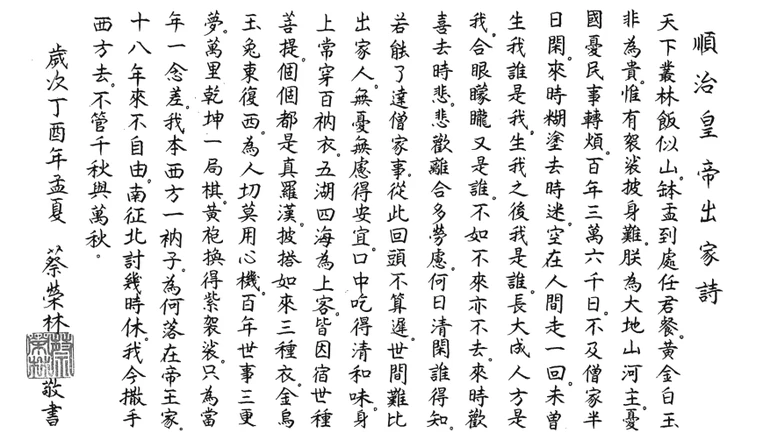 順治皇帝出家詩
天下叢林飯似山。缽盂到處任君餐。黃金白玉
非為貴。惟有袈裟披身難。朕為大地山河主。憂
國憂民事轉煩。百年三萬六千日。不及僧家半
日閑。來時糊塗去時迷。空在人間走一回。未曾
生我誰是我。生我之後我是誰。長大成人方是
我。合眼矇矓又是誰。不如不來亦不去。來時歡
喜去時悲。悲歡離合多勞慮。何日清閑誰得知。
若能了達僧家事。從此回頭不算遲。世間難比
出家人。無憂無慮得安宜。口中吃得清和味。身
上常穿百衲衣。五湖四海為上客。皆因宿世種
菩提。個個都是真羅漢。披搭如來三種衣。金烏
玉兔東復西。為人切莫用心機。百年世事三更
夢。萬里乾坤一局棋。黃袍換得紫袈裟。只為當
年一念差。我本西方一衲子。為何落在帝王家。
十八年來不自由。南征北討幾時休。我今撒手
西方去。不管千秋與萬秋。
歲次丁酉年孟夏 蔡榮林 敬書